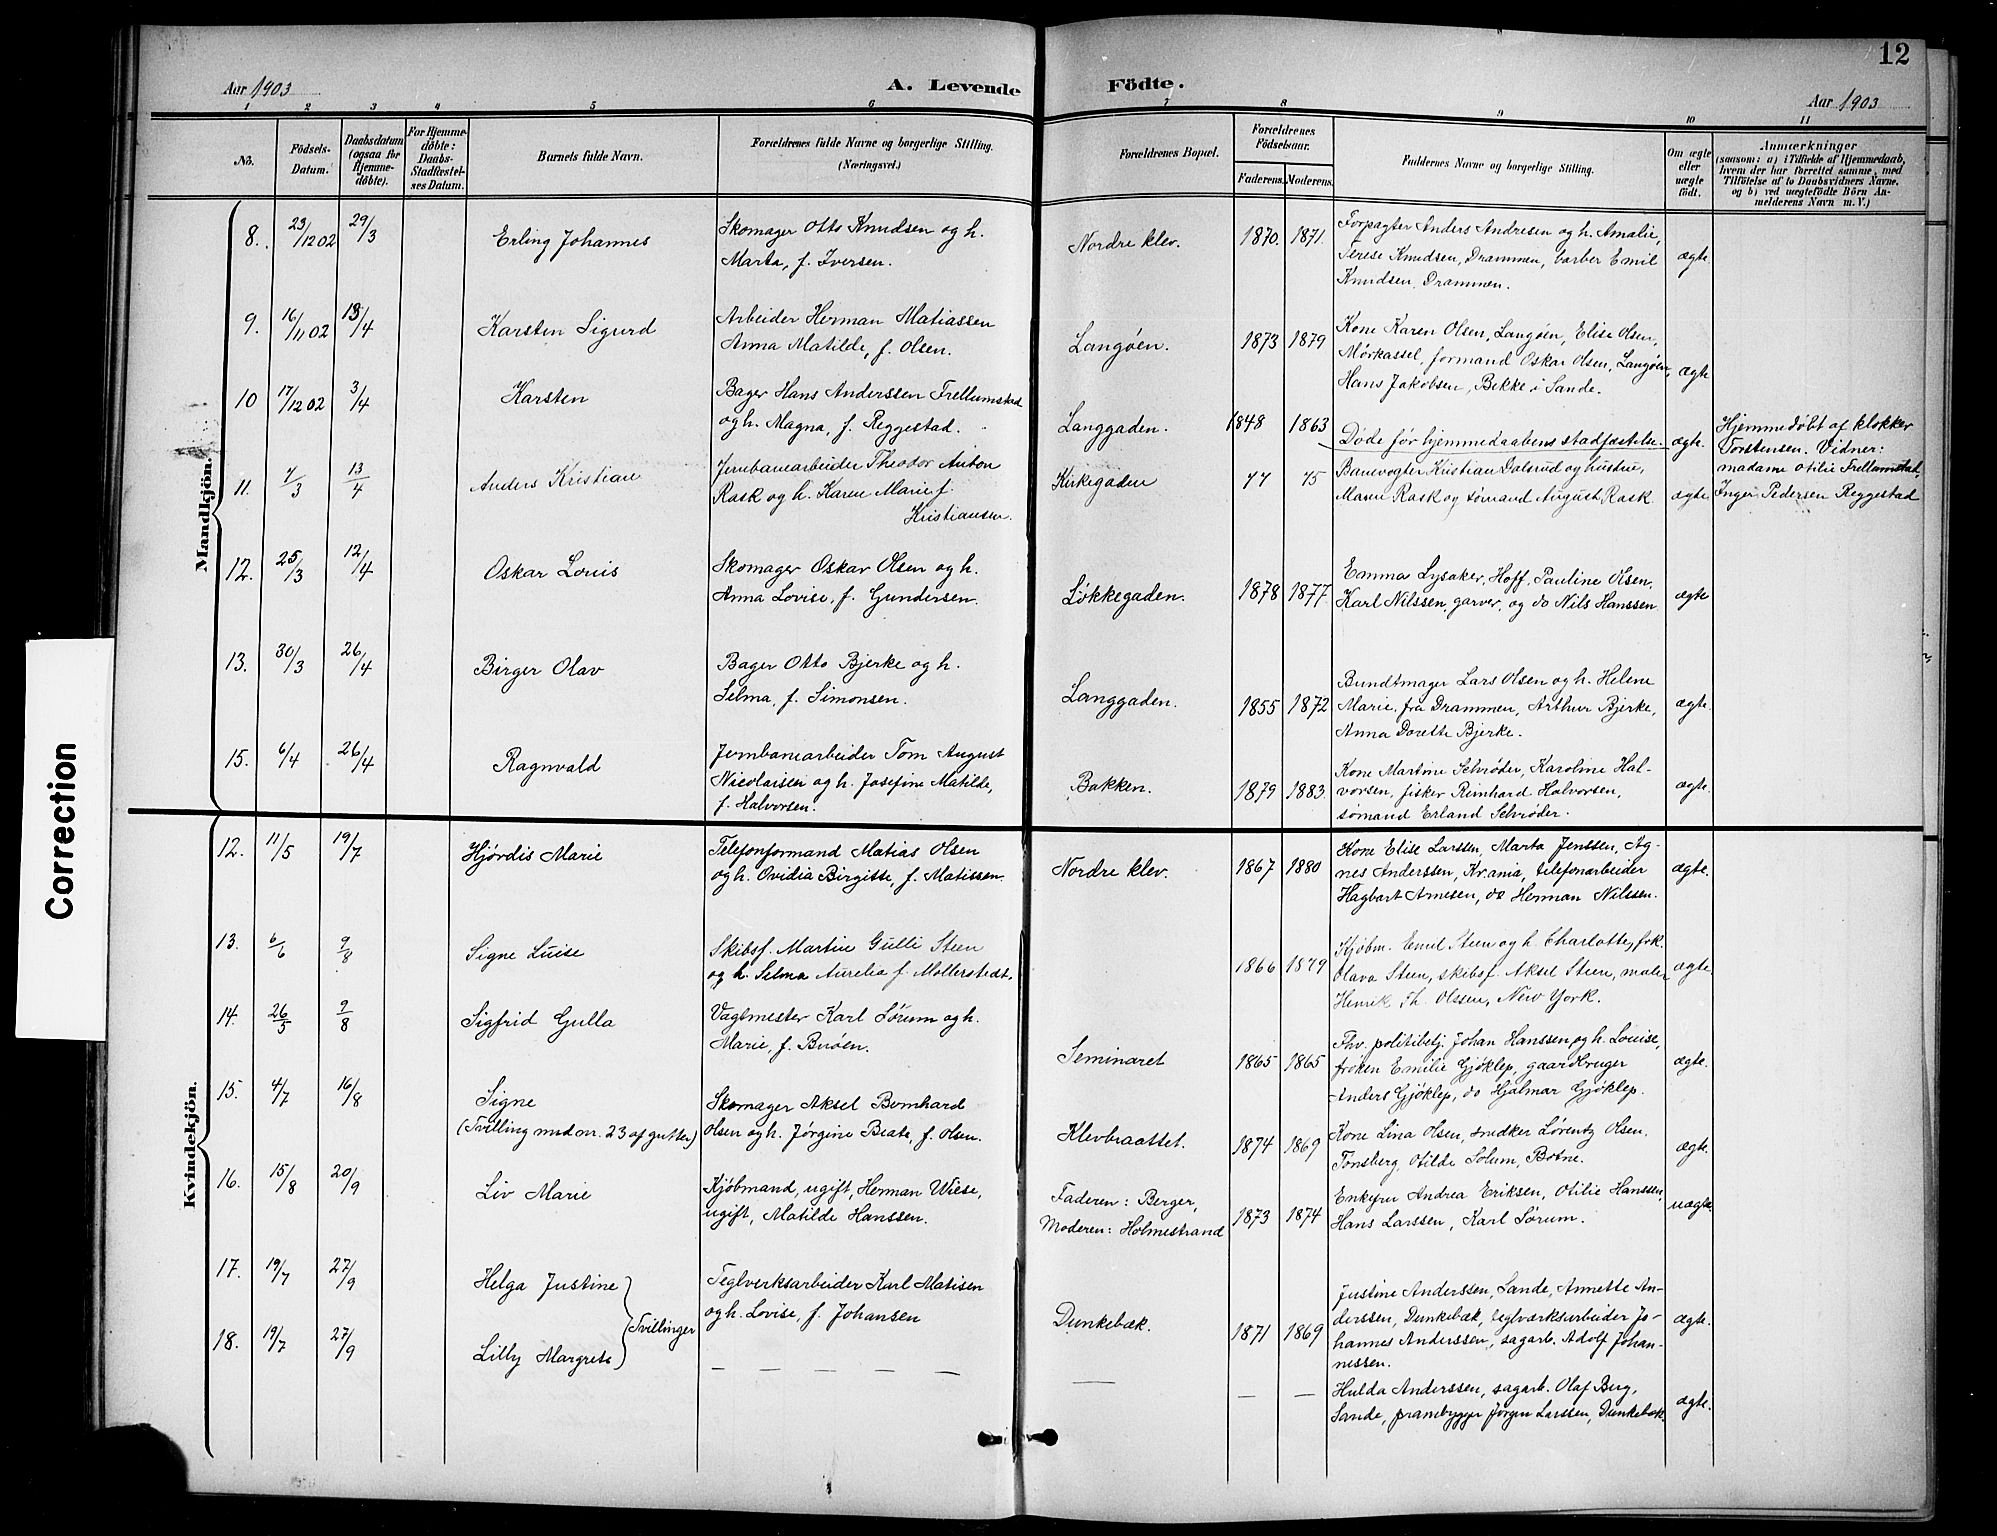 12
Aar 1903
A. Levende
Födte.
Aar 1903
1 2 3 4 5 6 7 8 9 10 11
No.
Födsels-
Datum.
Daabsdatum
(ogsaa for
Hjemme-
döbte).
For Hjemme-
döbte:
Daabs-
Stadfæstel-
ses Datum.
Barnets fulde Navn.
Forældrenes fulde Navne og borgerlige Stilling.
(Næringsvei.)
Forældrenes Bopæl.
Forældrenes
Födselsaar.
Faderens.
Moderens.
Faddernes Navne og borgerlige Stilling.
Om ægte
eller
uægte
födt.
Anmærkninger
(saasom: a) i Tilfælde af Hjemmedaab,
hvem der har forrettet samme, med
Tilföielse af to Daabsvidners Navne,
og b) ved uægtefödte Börn An-
melderens Navn m. V.)
Mandkjön.
8. 23/12 02 29/3 Erling Johannes
Skomager Otto Knudsen og h.
Marta, f. Iversen.
Nordre klev. 1870. 1871.
Forpagter Anders Andresen og h. Amalie,
Terese Knudsen, Drammen, barber Emil
Knudsen, Drammen.
ægte.
9. 16/11 02 13/4 Karsten Sigurd
Arbeider Herman Matiassen
Anna Matilde, f. Olsen.
Langøen. 1873 1879
Kone Karen Olsen, Langøen, Elise Olsen,
Mørkassel, formand Oskar Olsen, Langøen,
Hans Jakobsen, Bekke i Sande.
ægte
10 17/12 02 3/4 Karsten
Bager Hans Anderssen Frellumstad
og h. Magna, f. Reggestad.
Langgaden. 1848 1863
Døde før hjemmedaabens stadfæstelse.
ægte.
Hjemmedøbt af klokker
Torstensen. Vidner:
madame Otilie Frellumstad,
Inger Pedersen Reggestad
11. 7/3 13/4 Anders Kristian
Jernbanearbeider Theodor Anton
Rask og h. Karen Marie f.
Kristiansen.
Kirkegaden 77 75
Banevogter Kristian Dalsrud og hustru,
Maren Rask og sømand August Rask
ægte.
12. 25/3 12/4 Oskar Louis
Skomager Oskar Olsen og h.
Anna Lovise, f. Gundersen.
Løkkegaden. 1878 1877.
Emma Lysaker, Hoff, Pauline Olsen,
Karl Nilssen, garver, og do Nils Hanssen
ægte
13. 30/3 26/4 Birger Olav
Bager Otto Bjerke og h.
Selma, f. Simonsen.
Langgaden. 1855 1872
Bundtmager Lars Olsen og h. Helene
Marie, fra Drammen, Arthur Bjerke,
Anna Dorette Bjerke.
ægte.
15. 6/4 26/4 Ragnvald
Jernbanearbeider Tom August
Nicolaisen og h. Josefine Matilde,
f. Halvorsen.
Bakken. 1879 1883.
Kone Martine Schrøder, Karoline Hal-
vorsen, fisker Reinhard Halvorsen,
sømand Erland Schrøder.
ægte.
Kvindekjön.
12. 11/5 19/7 Hjørdis Marie
Telefonformand Matias Olsen
og h. Ovidia Birgitte, f. Matissen.
Nordre klev. 1867 1880
Kone Elise Larssen, Marta Jenssen, Ag-
nes Anderssen, Kr.ania, telefonarbeider
Hagbart Arnesen, do Herman Nilssen.
ægte.
13. 6/6 9/8 Signe Luise
Skibsf. Martin Gulli Steen
og h. Selma Aurelia f. Mollerstedt.
1866 1879
Kjøbm. Emil Steen og h. Charlotte, frk.
Olava Steen, skibsf. Aksel Steen, maler
Henrik Th. Olssen, New York.
ægte.
14. 26/5 9/8 Sigfrid Gulla
Vagtmester Karl Sørum og h.
Marie, f. Buøen.
Seminaret 1865 1865
Fhv. politibetj. Johan Hanssen og h. Louise,
frøken Emilie Gjøklep, gaardbruger
Anders Gjøklep, do Hjalmar Gjøklep.
ægte.
15. 4/7 16/8 Signe
(Tvilling med nr. 23 af gutter)
Skomager Aksel Bernhard
Olsen og h. Jørgine Beate, f. Olsen.
Klevbraattet. 1874 1869
Kone Lina Olsen, snedker Lørentz Olsen,
Tønsberg, Otilde Solum, Botne.
ægte.
16. 15/8 20/9 Liv Marie
Kjøbmand, ugift, Herman Wiese,
ugift, Matilde Hanssen.
Faderen: Berger,
Moderen: Holmestrand
1873 1874
Enkefru Andrea Eriksen, Otilie Hanssen,
Hans Larssen, Karl Sørum.
uægte.
17. 19/7 27/9 Helga Justine
Tvillinger
Teglverksarbeider Karl Matisen
og h. Lovise, f. Johansen
Dunkebæk. 1871 1869
Justine Anderssen, Sande, Annette An-
derssen, Dunkebæk, teglværksarbeider Jo-
hannes Anderssen, sagarb. Adolf Johan-
nessen.
ægte.
18. 19/7 27/9 Lilly Margrete
— — — — —
— — —
Hulda Anderssen, sagarb. Olaf Berg,
Sande, prambygger Jørgen Larssen, Dunkebæk
ægte.
Correction